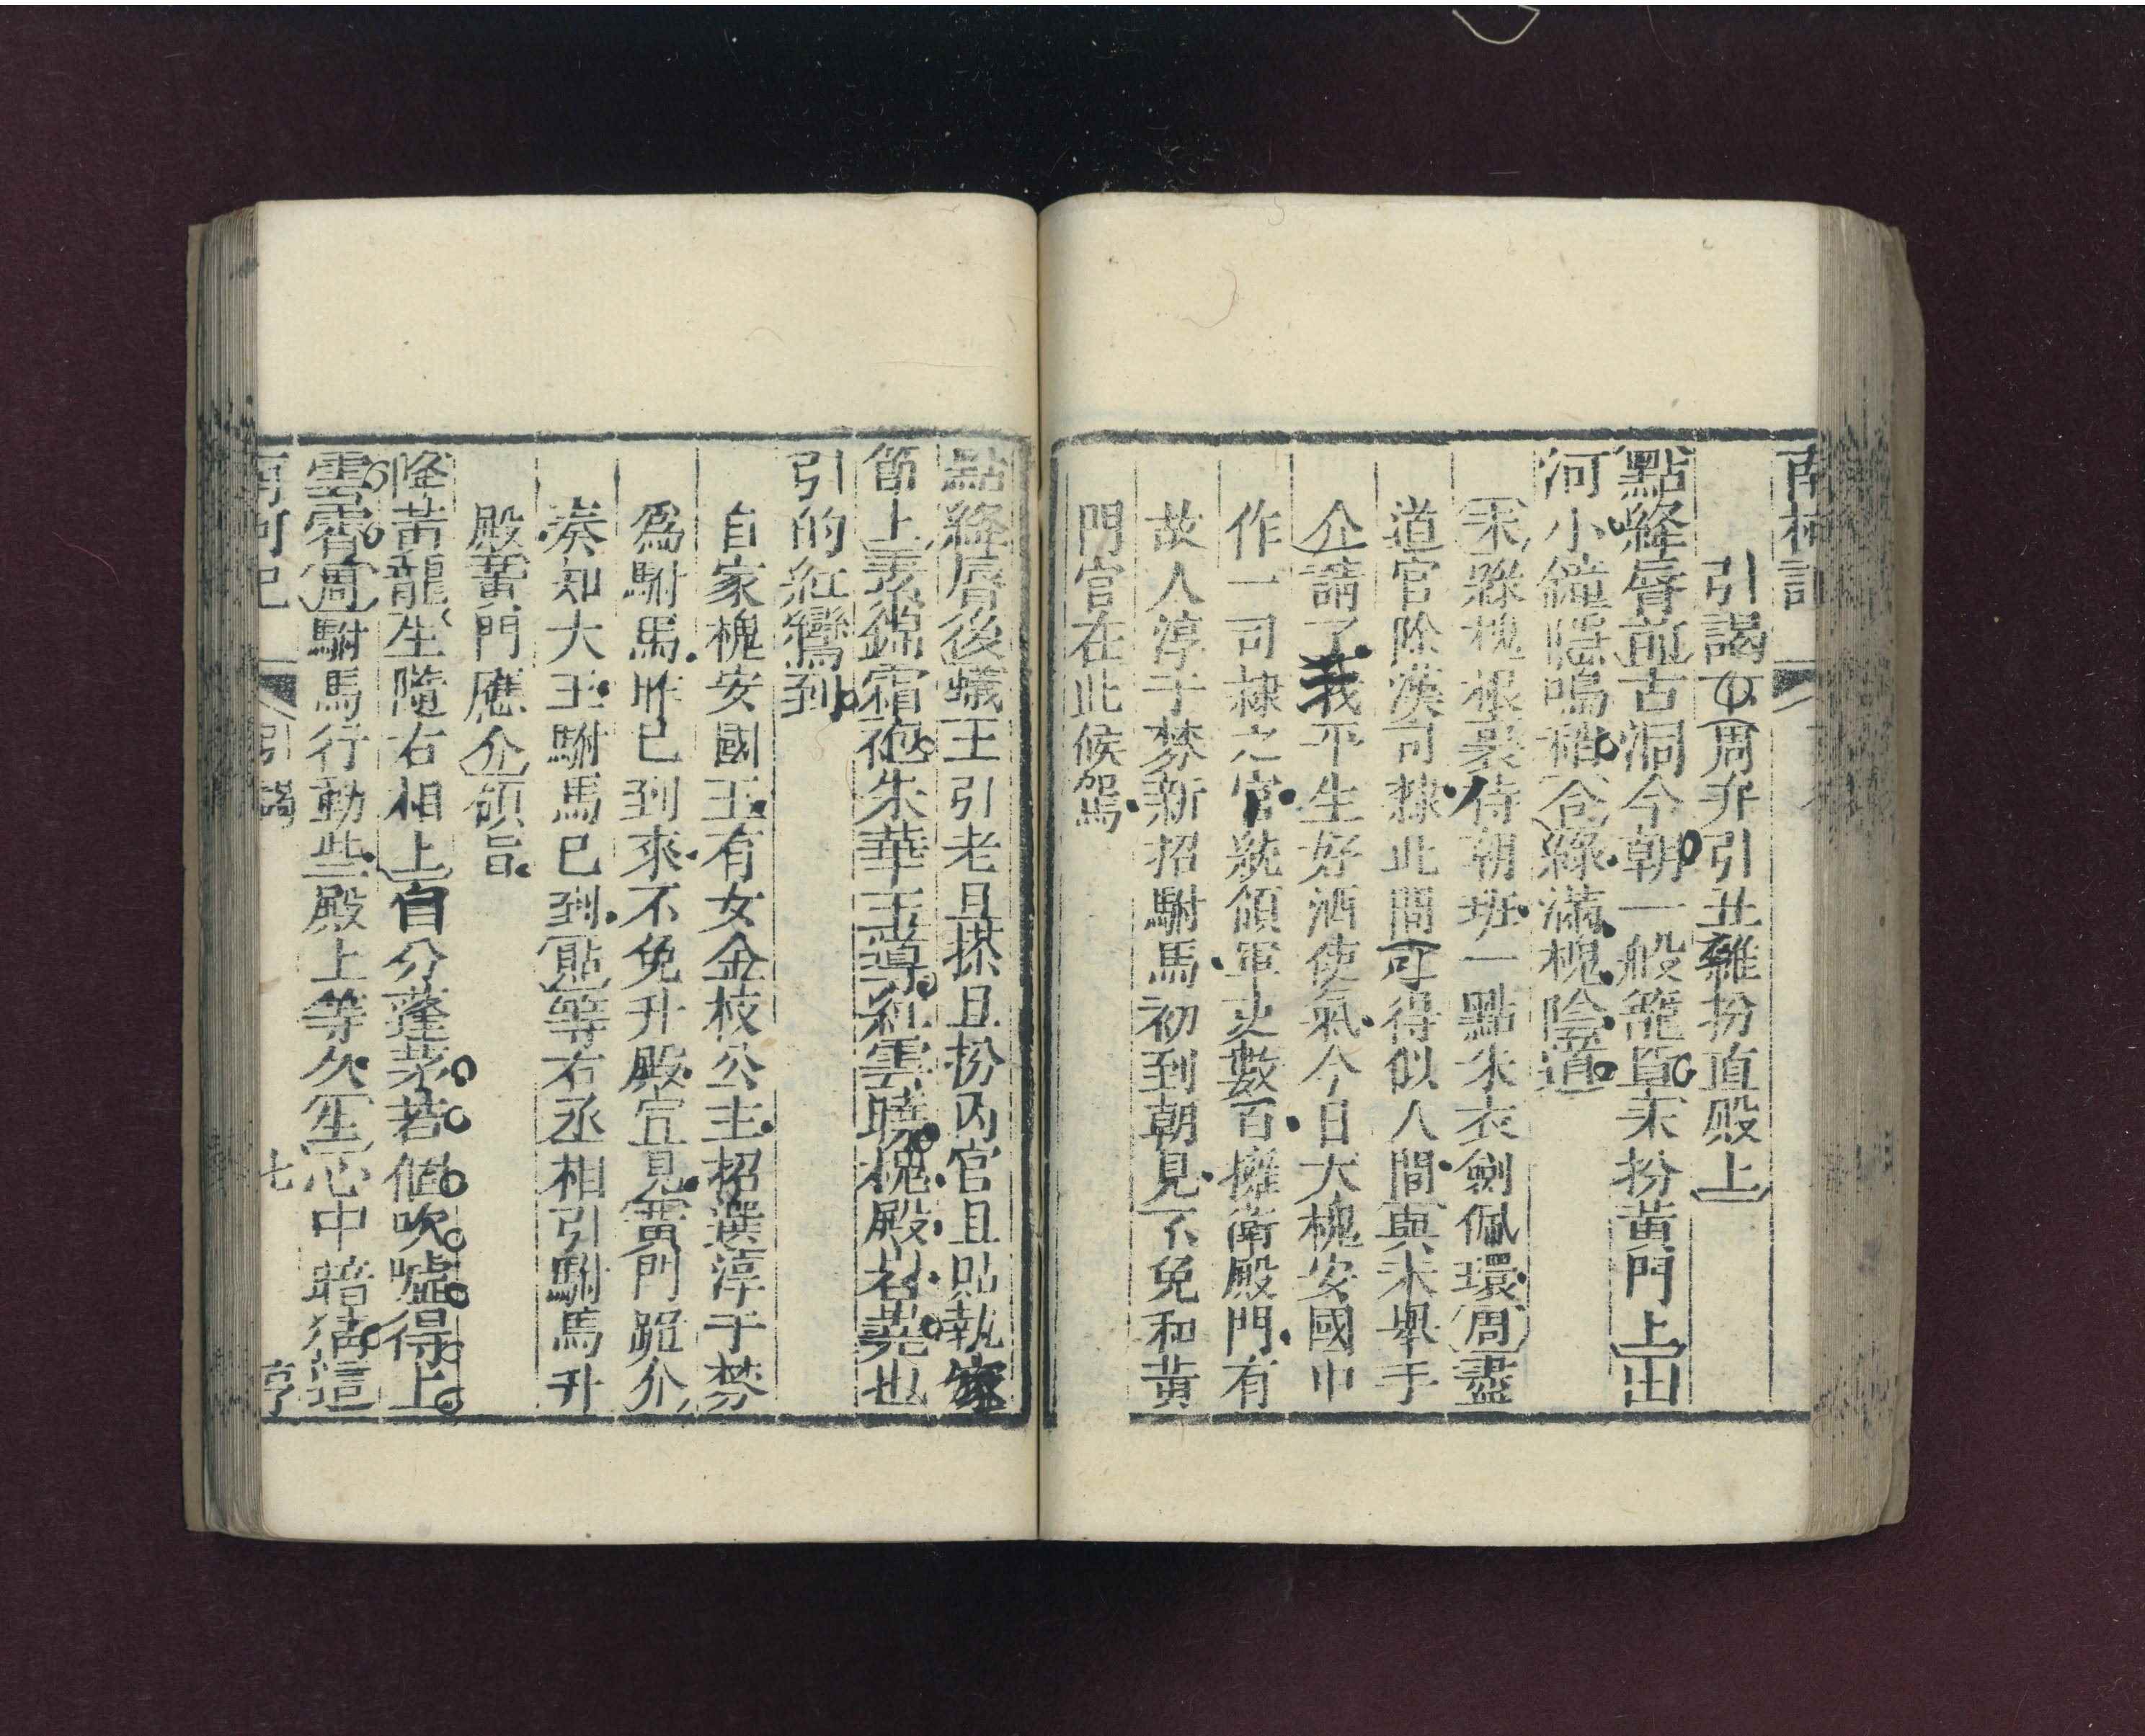 南柯記
引謁 周弁引丑雜扮直殿上
點絳唇前古洞今朝一般籠罩末扮黃門上山
河小鐘隱鳴稍合綠滿槐陰道
末縣槐根裏侍朝班一點朱衣劍佩環周盡
道官除漢司隸此間可得似人間與末舉手
介請了我平生好酒使氣今日大槐安國中
作一司隸之官統領軍吏數百擁衛殿門有
故人淳于棼新招駙馬初到朝見不免和黃
門官在此候駕
點絳唇後蟻王引老旦搽旦扮內官旦貼執
節上素錦霜袍朱華玉導紅雲曉槐殿岩嶤也
引的紅鸞到
自家槐安國王有女金枝公主招選淳于棼
爲駙馬昨已到來不免升殿宣見黃門跪介
奏知大王駙馬已到貼等右丞相引駙馬升
殿黃門應介領旨
降黃龍生隨右相上自分蓬茅若個吹噓得上
雲霄周駙馬行動些殿上等久生心中暗猜這
南柯記 引謁 七 亨